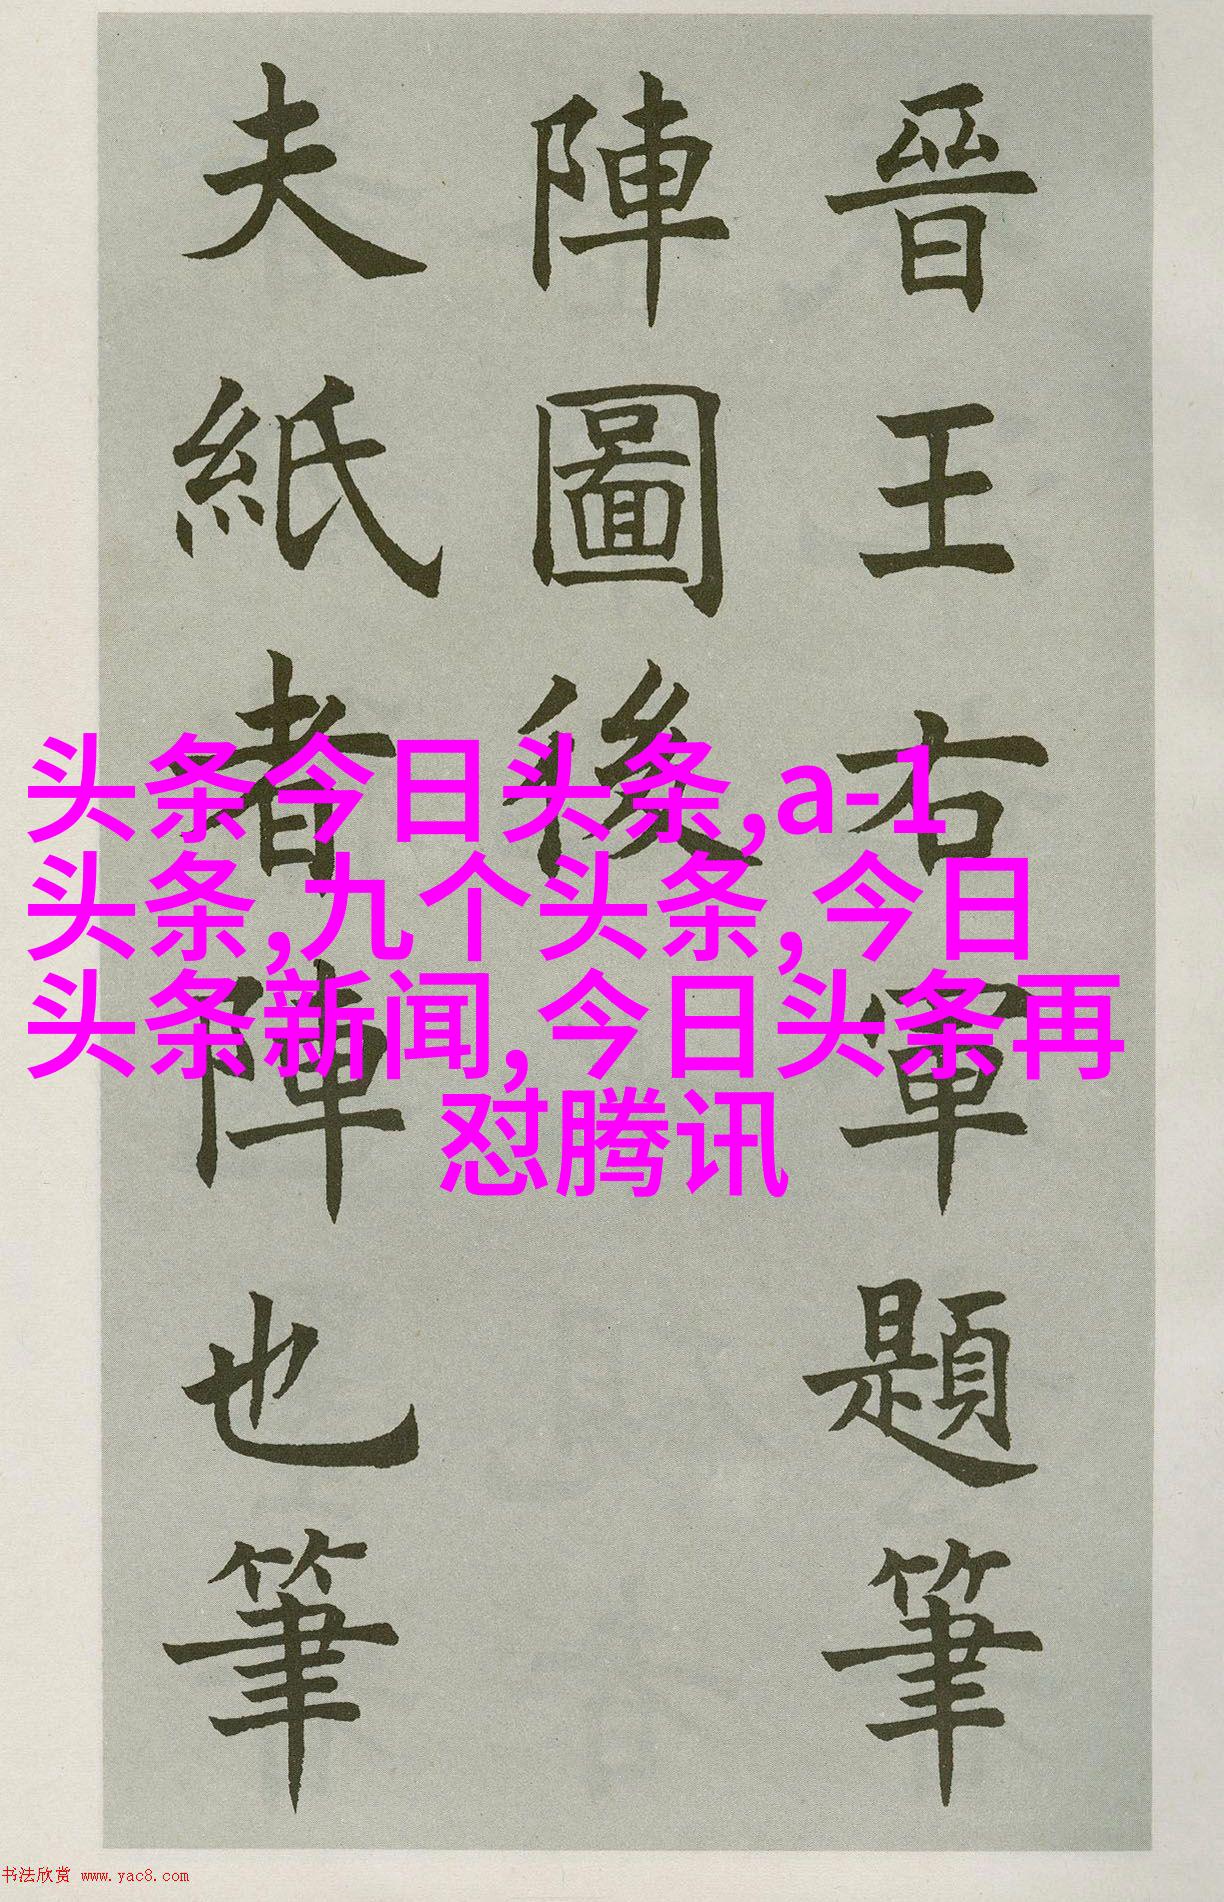 晉王右軍題筆
陣圖後
夫紙者陣也筆
头条今日头条,a-1
头条,九个头条, 今日
头条新闻, 今日头条再
怼腾讯
书法欣赏 www.yac8.com